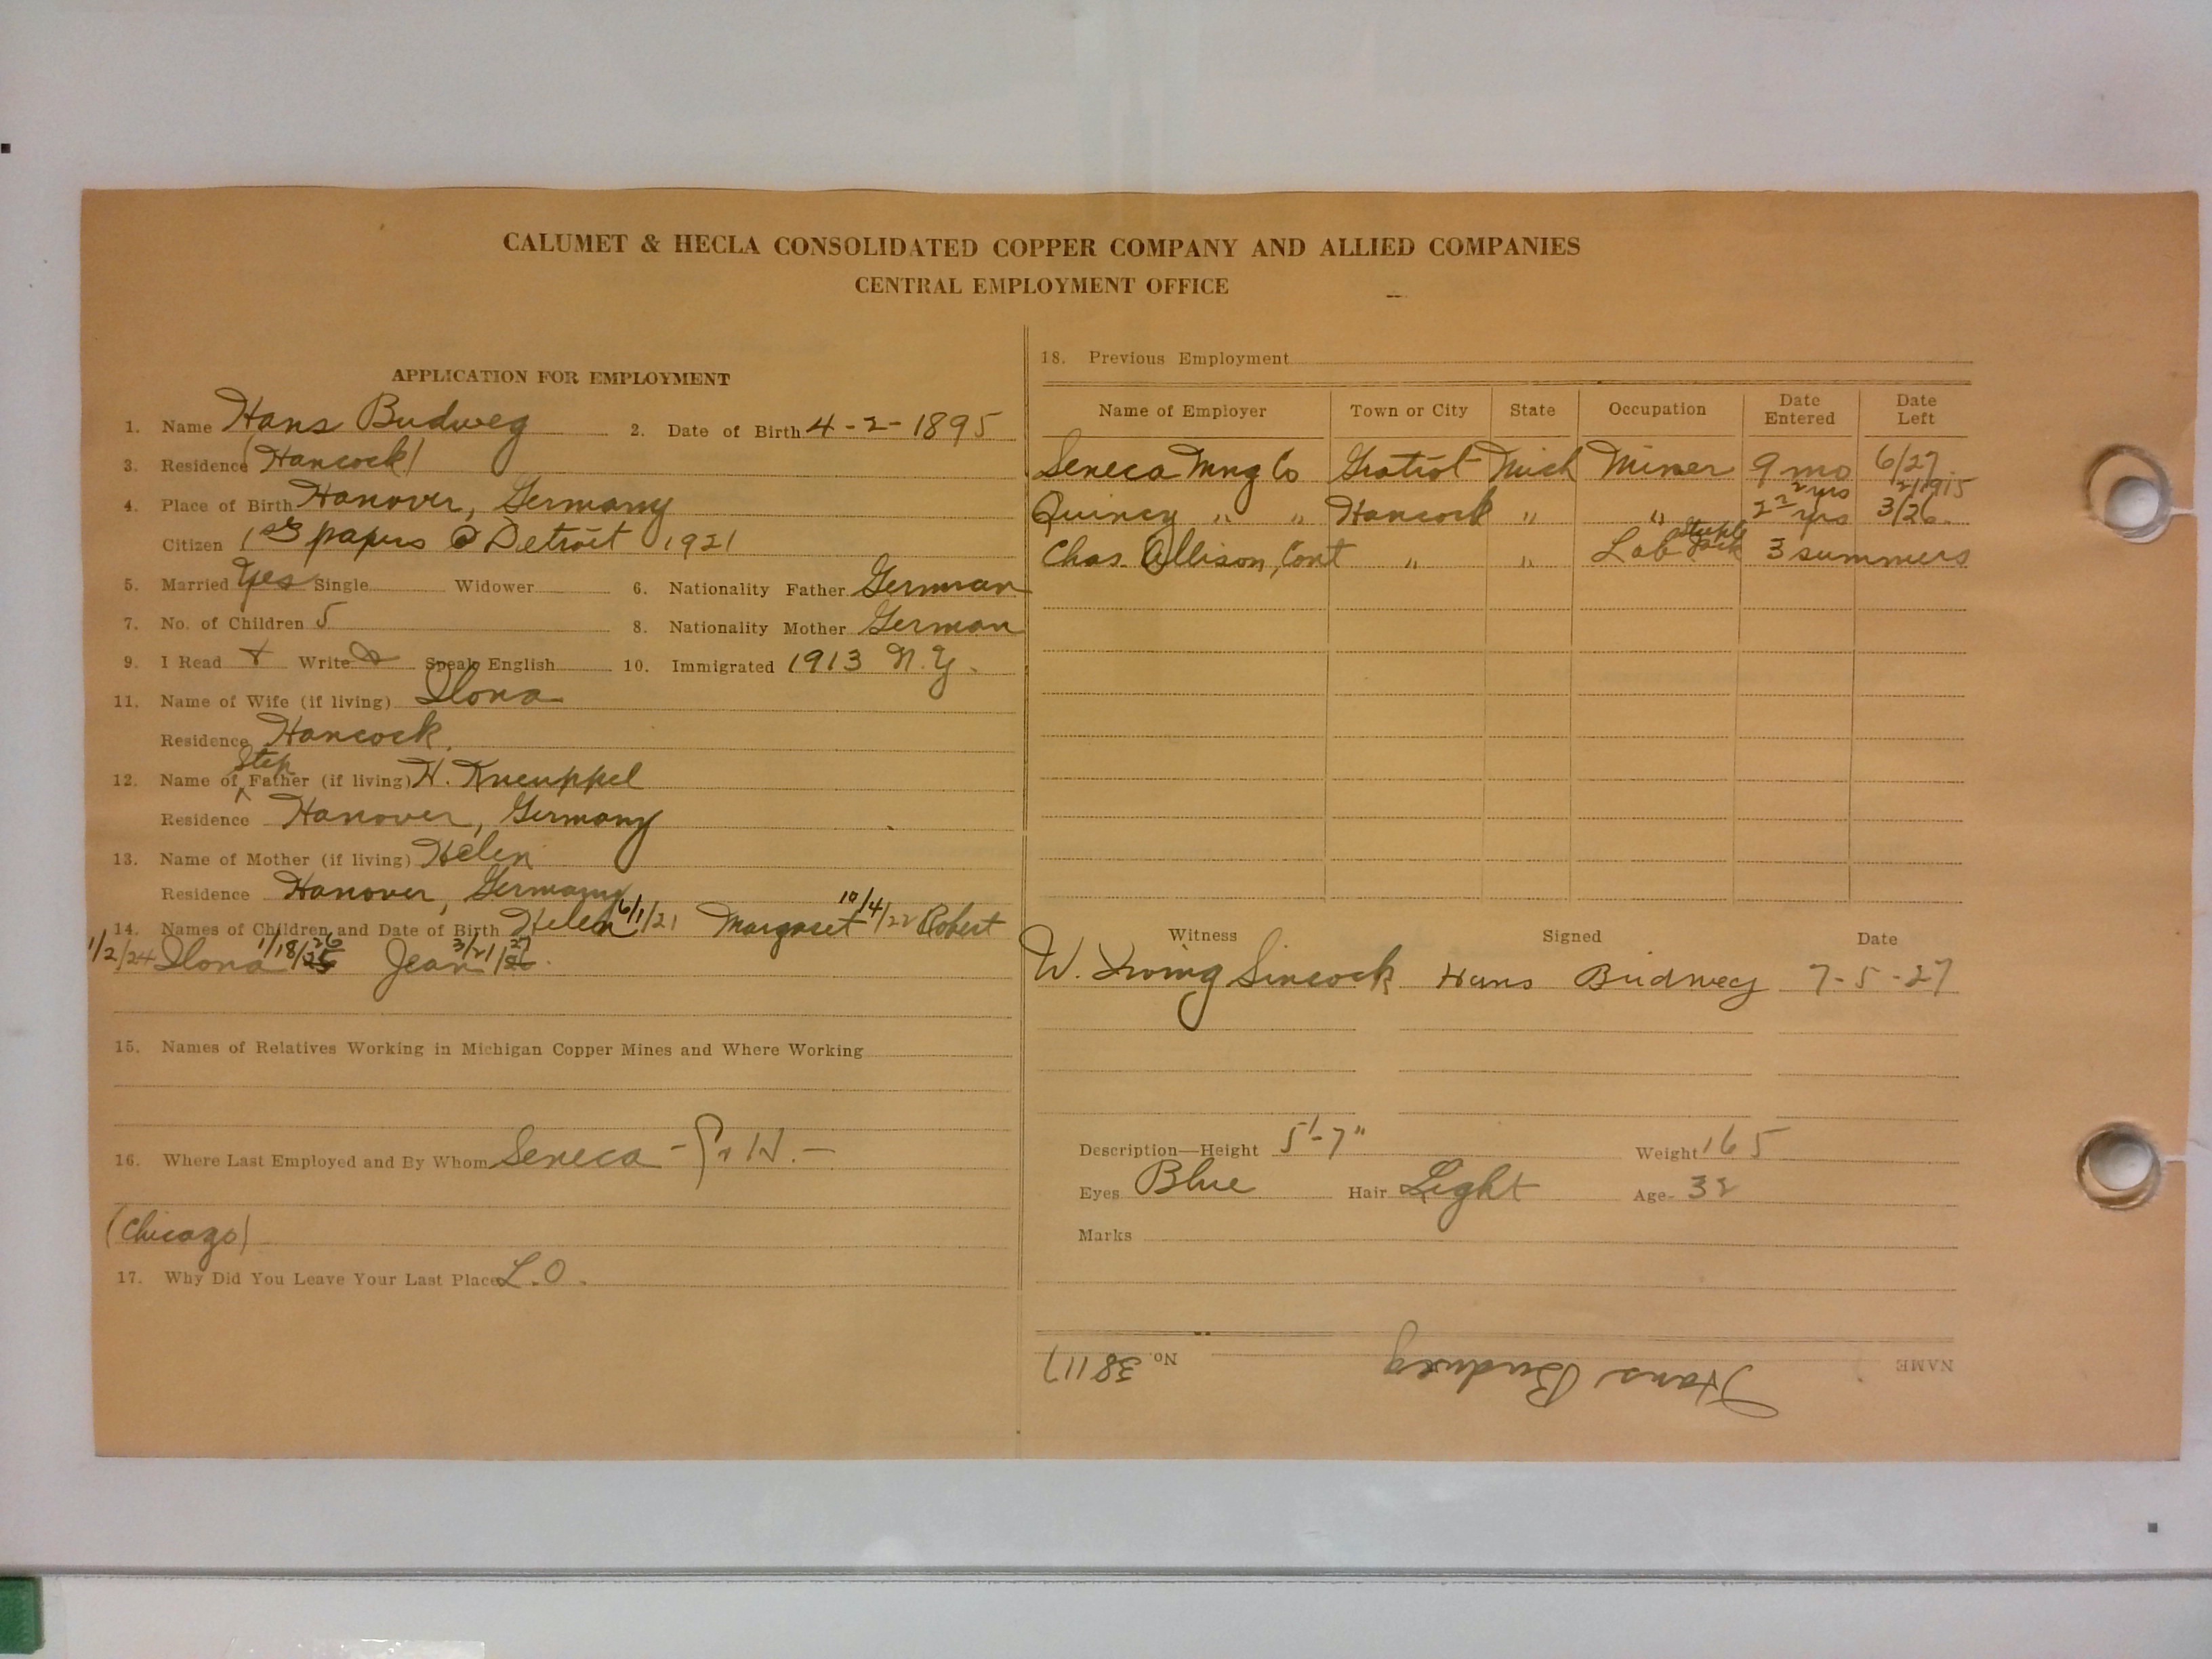 CALUMET & HECLA CONSOLIDATED COPPER COMPANY AND ALLIED COMPANIES
CENTRAL EMPLOYMENT OFFICE
APPLICATION FOR EMPLOYMENT
1. Name Hans Budweg 2. Date of Birth 4-2-1895
3. Residence (Hancock)
4. Place of Birth Hanover, Germany
Citizen 1st papers @ Detroit 1921
5. Married Yes Single Widower 6. Nationality Father German
7. No. of Children 5 8. Nationality Mother German
9. I Read Write Speak English 10. Immigrated 1913 N.Y.
11. Name of Wife (if living) Ilona
Residence Hancock.
Step
12. Name of Father (if living) H. Kneuppel
Residence Hanover, Germany
13. Name of Mother (if living) Helen
Residence Hanover, Germany
14. Names of Children and Date of Birth Helen 6/1/21 Margaret 10/4/22 Robert
1/2/24 Ilona 1/18/26 Jean 3/21/27
15. Names of Relatives Working in Michigan Copper Mines and Where Working
16. Where Last Employed and By Whom Seneca
(Chicago)
17. Why Did You Leave Your Last Place L.O.
18. Previous Employment
Name of Employer Town or City State Occupation Date Entered Date Left
Seneca Mng Co Gratiot Mich Miner 9 mo 6/27.
2 yrs
Quincy " " Hancock " " yrs 3/26.
Steeple Jack
Chas. Allison, Cont " " Lab 3 summers
Witness Signed Date
W. Irving Sincock Hans Budweg 7-5-27
Description—Height 5'-7" Weight 165
Eyes Blue Hair Light Age 32
Marks
NAME Hans Budweg No 38117